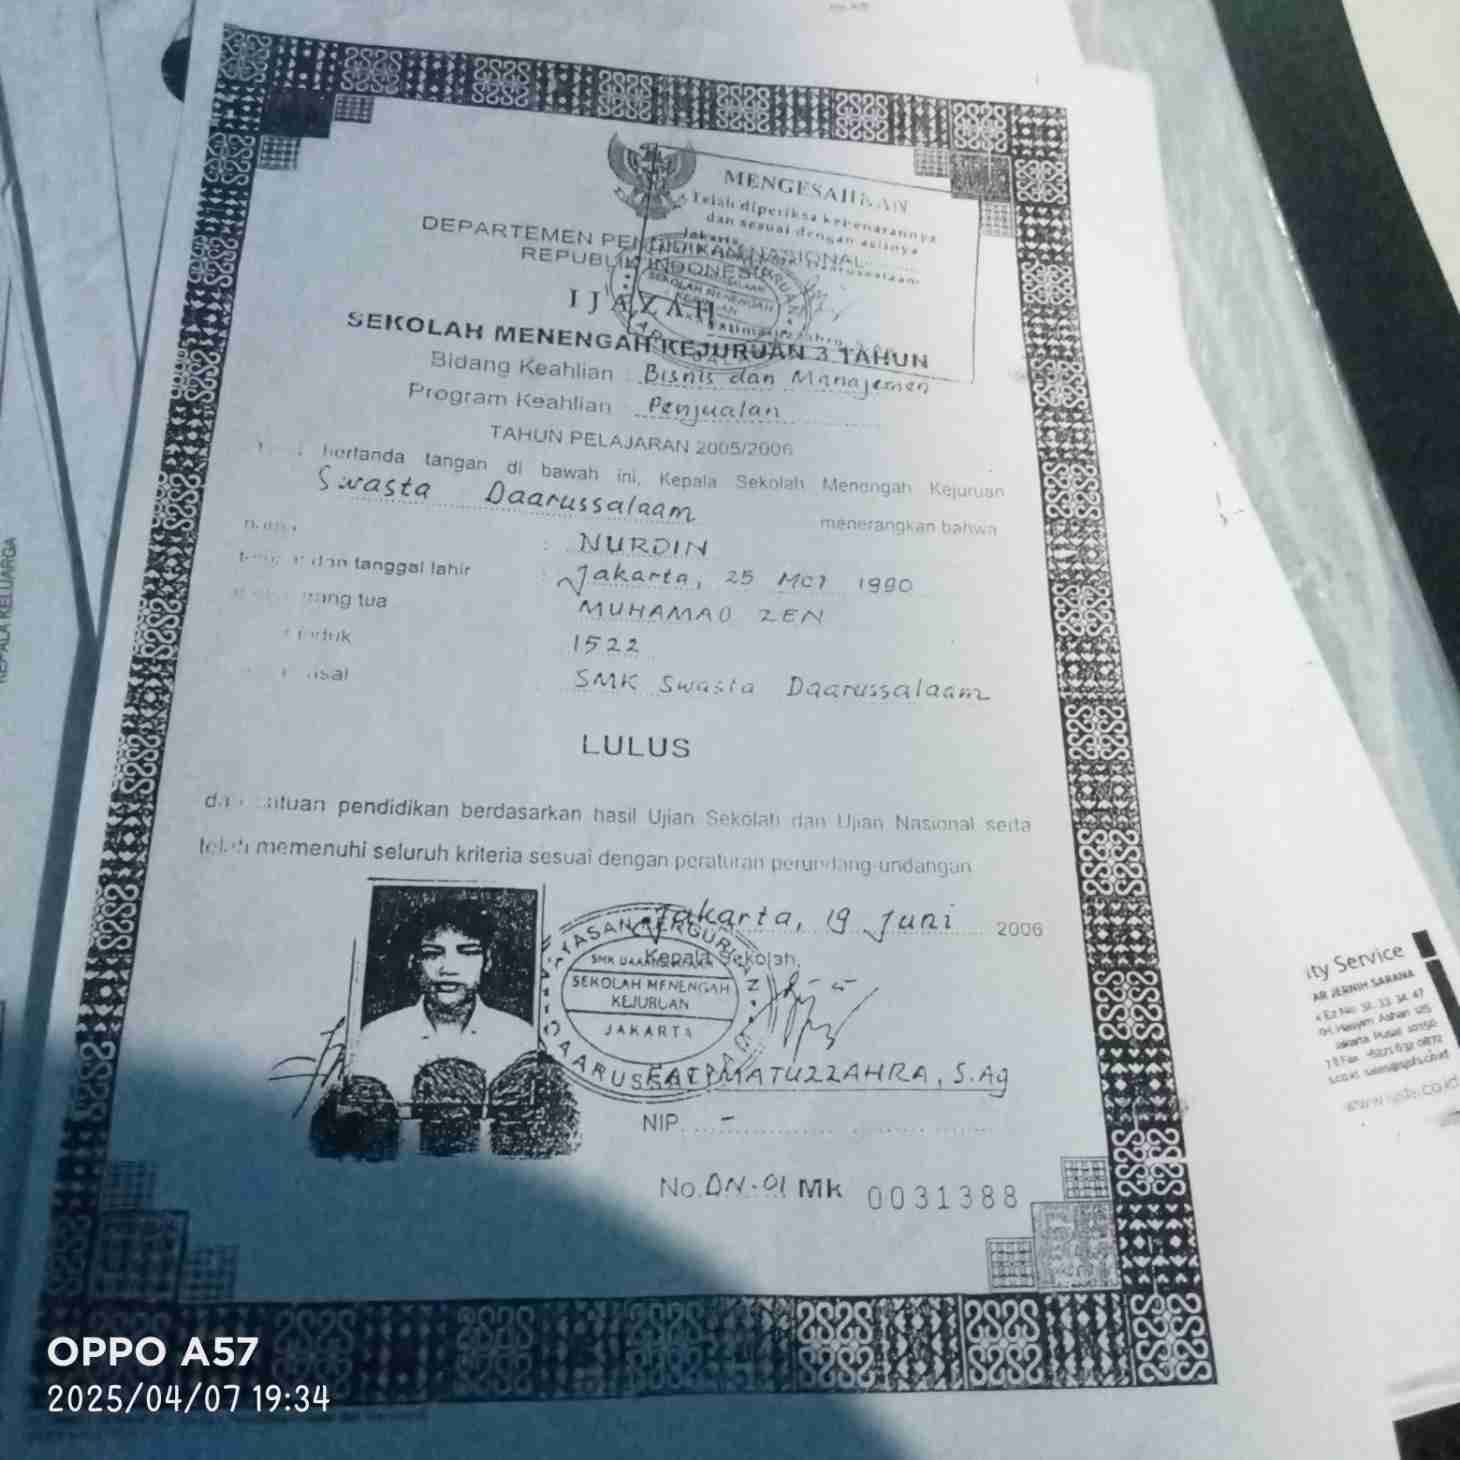 MENGESAHKAN
Telah diperiksa kebenarannya
dan sesuai dengan aslinya
Jakarta
DEPARTEMEN PENDIDIKAN NASIONAL
REPUBLIK INDONESIA
IJAZAH
SEKOLAH MENENGAH KEJURUAN 3 TAHUN
Bidang Keahlian : Bisnis dan Manajemen
Program Keahlian : Penjualan
TAHUN PELAJARAN 2005/2006
bertanda tangan di bawah ini, Kepala Sekolah Menengah Kejuruan
Swasta Daarussalaam menerangkan bahwa
: NURDIN
dan tanggal lahir : Jakarta, 25 Mei 1990
orang tua MUHAMAD ZEN
induk 1522
asal SMK Swasta Daarussalaam
LULUS
dari satuan pendidikan berdasarkan hasil Ujian Sekolah dan Ujian Nasional serta
telah memenuhi seluruh kriteria sesuai dengan peraturan perundang-undangan
Jakarta, 19 Juni 2006
Kepala Sekolah,
YAYASAN PERGURUAN
SEKOLAH MENENGAH
KEJURUAN
JAKARTA
DAARUSSALAAM
FATMATUZZAHRA, S.Ag
NIP. -
No. DN-01 Mk 0031388
KEPALA KELUARGA
ity Service
AR JERNIH SARANA
OPPO A57
2025/04/07 19:34